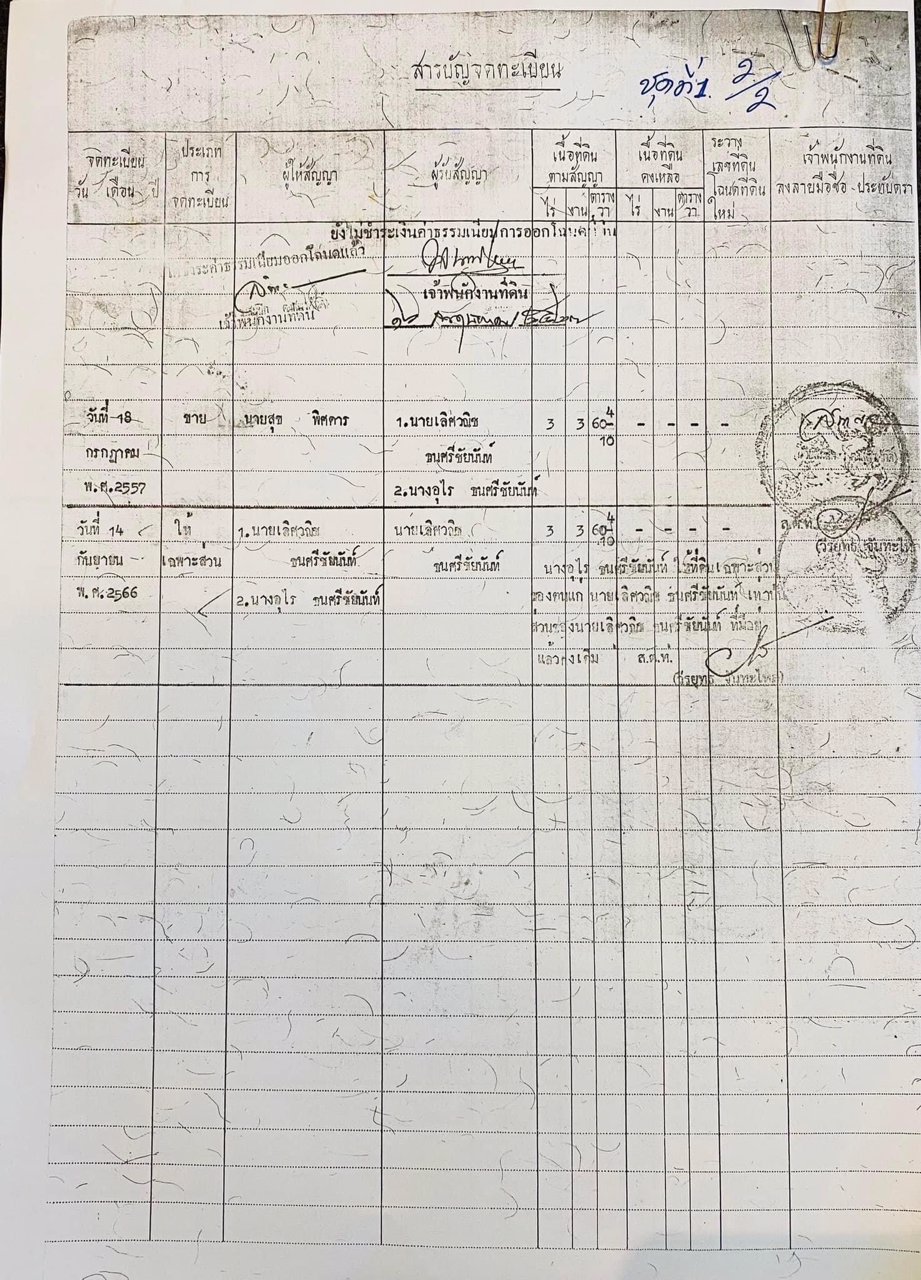 สารบัญจดทะเบียน
ชุดที่ 1. 2/2
จดทะเบียน วัน เดือน ปี
ประเภท การ จดทะเบียน
ผู้ให้สัญญา
ผู้รับสัญญา
เนื้อที่ดิน ตามสัญญา
ไร่ งาน ตาราง วา
เนื้อที่ดิน คงเหลือ
ไร่ งาน ตาราง วา
ระวาง เลขที่ดิน โฉนดที่ดิน ใหม่
เจ้าพนักงานที่ดิน ลงลายมือชื่อ - ประทับตรา
ยังไม่ชำระเงินค่าธรรมเนียมการออกโฉนด
ชำระค่าธรรมเนียมออกโฉนดแล้ว
เจ้าพนักงานที่ดิน
เจ้าพนักงานที่ดิน
วันที่ 18 ขาย นายสุข พิศดาร 1.นายเลิศวณิช 3 3 60 4/10 - - - -
กรกฎาคม ธนศรีชัยนันท์
พ.ศ.2557 2.นางอุไร ธนศรีชัยนันท์
วันที่ 14 ให้ 1.นายเลิศวณิช นายเลิศวณิช 3 3 60 4/10 - - - - ส.ต.ท.
กันยายน เฉพาะส่วน ธนศรีชัยนันท์ ธนศรีชัยนันท์ นางอุไร ธนศรีชัยนันท์ ให้ที่ดินเฉพาะส่วน (วีรยุทธ จันทะไพร)
พ.ศ.2566 2.นางอุไร ธนศรีชัยนันท์ ของตนแก่ นายเลิศวณิช ธนศรีชัยนันท์ เท่านั้น
ส่วนของนายเลิศวณิช ธนศรีชัยนันท์ ที่มีอยู่
แล้วคงเดิม ส.ต.ท.
(วีรยุทธ จันทะไพร)